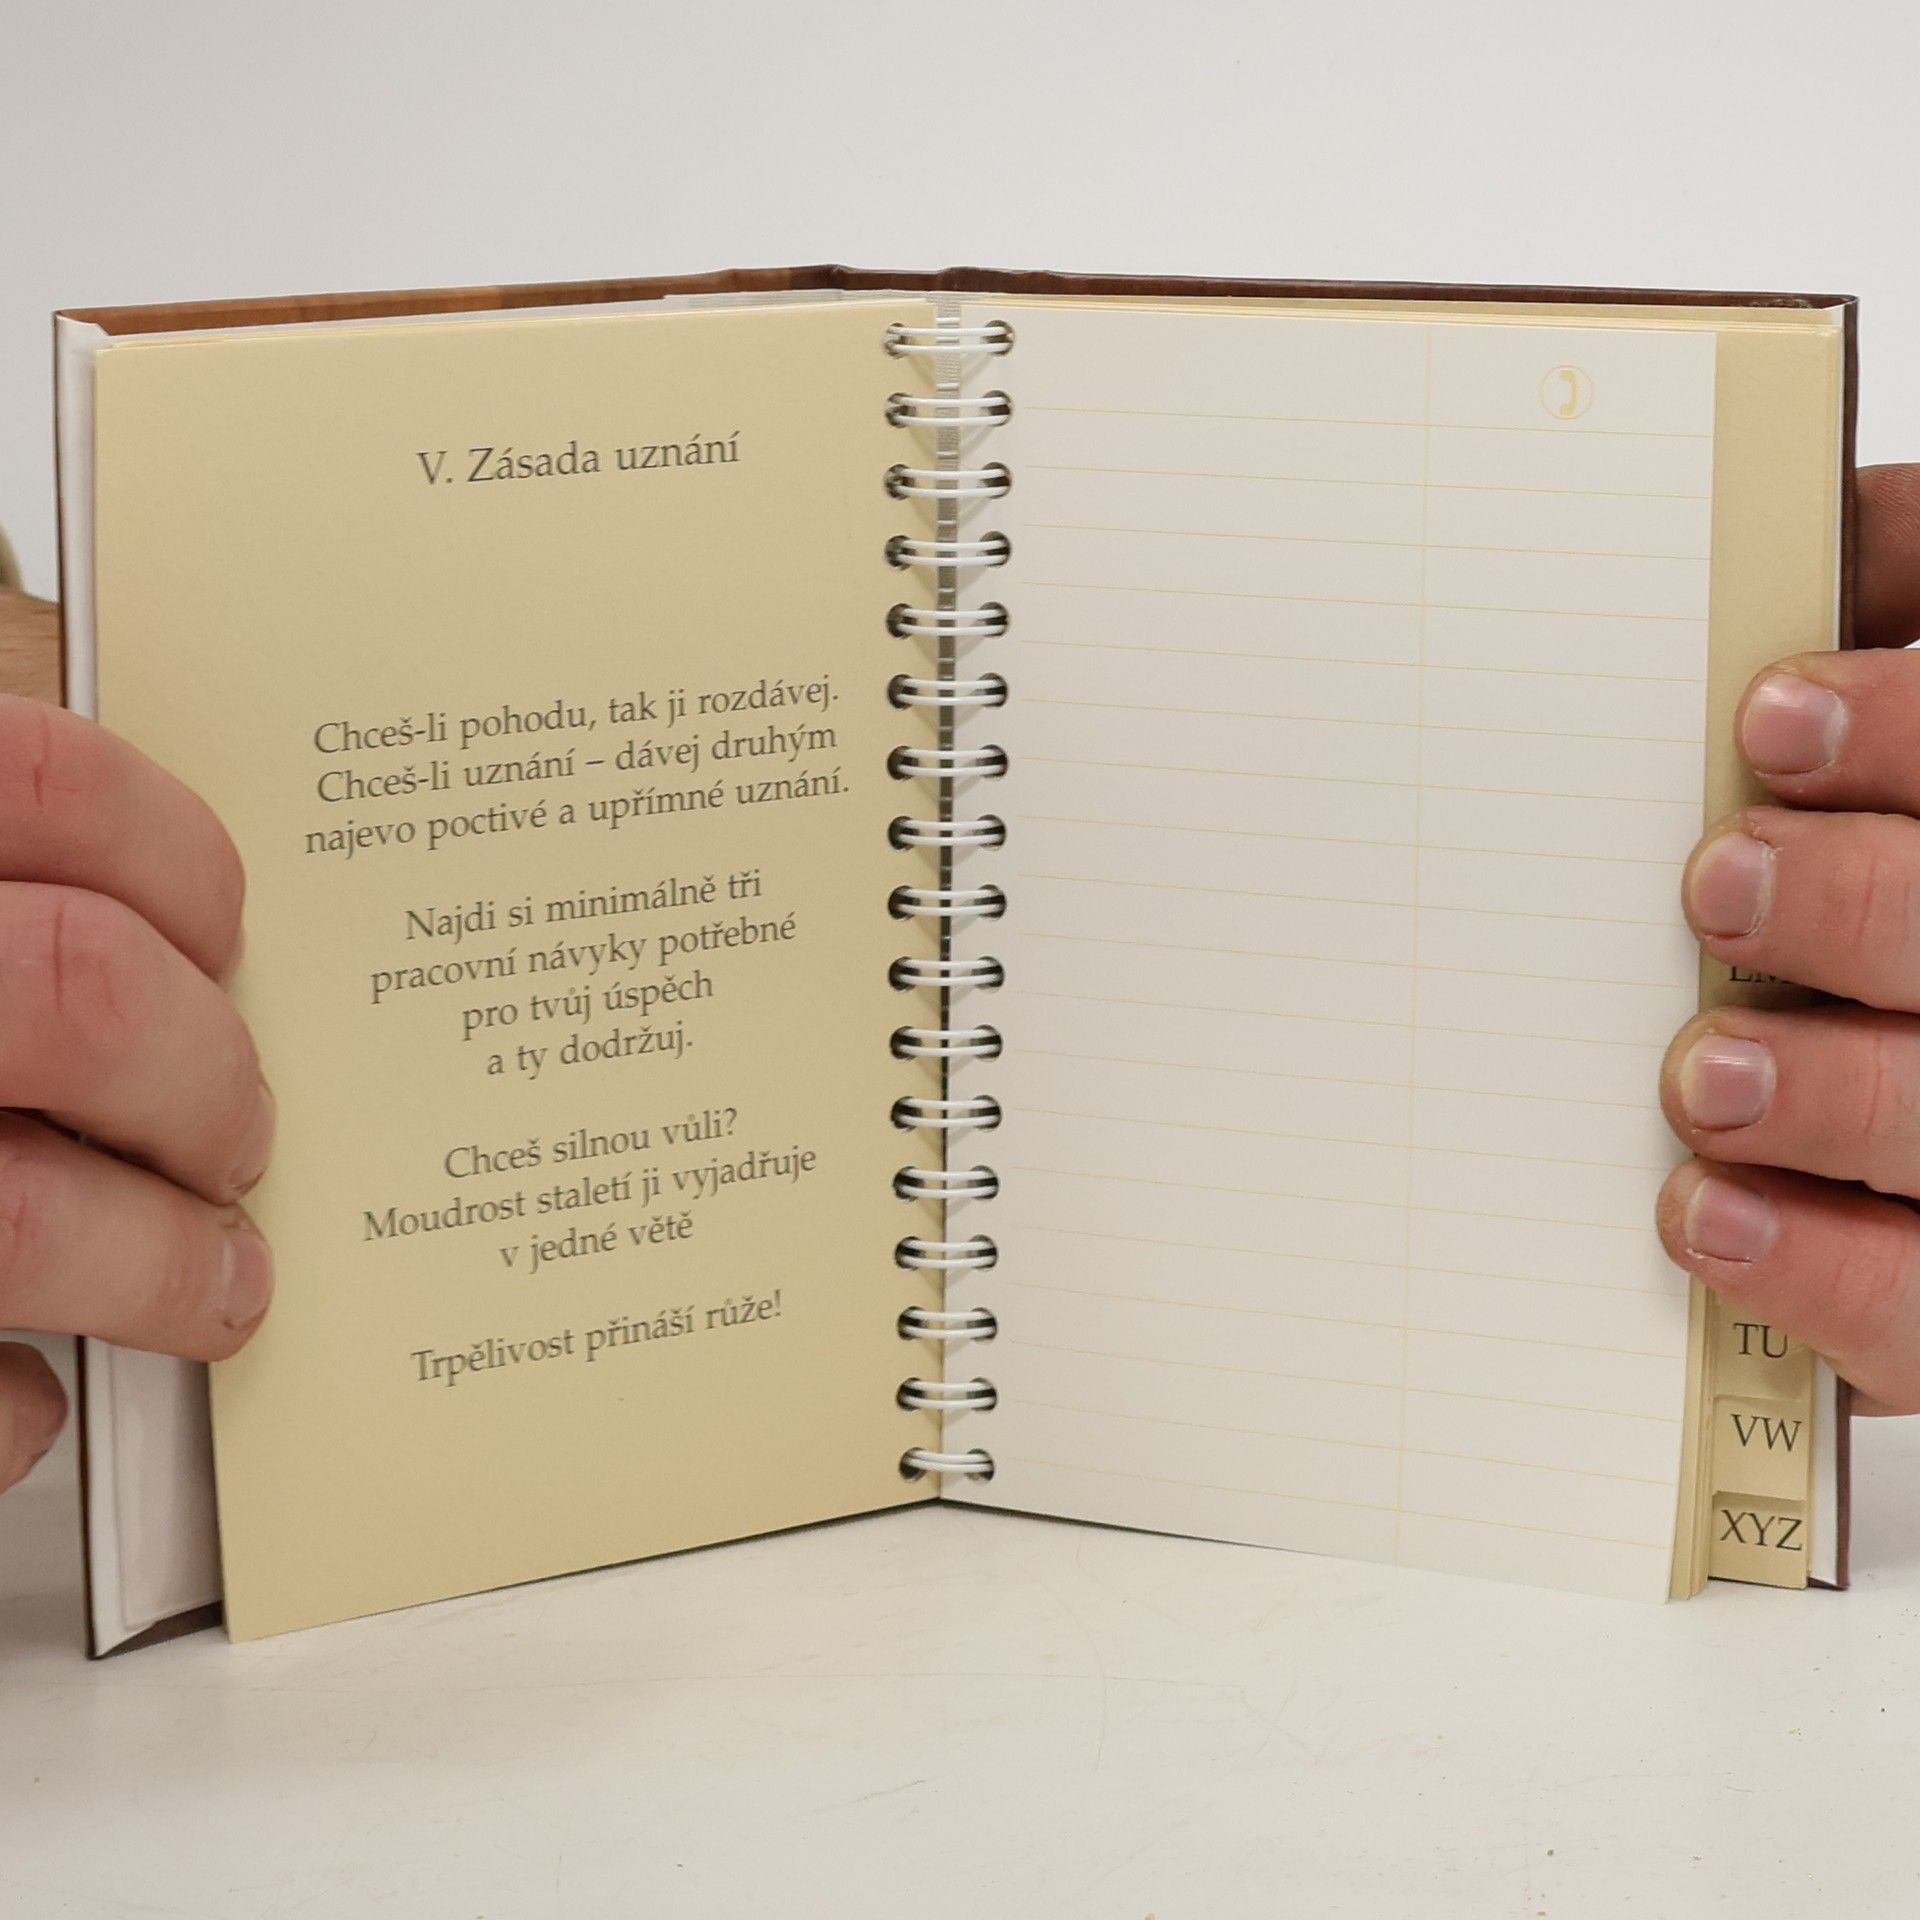 V. Zásada uznání
Chceš-li pohodu, tak ji rozdávej.
Chceš-li uznání – dávej druhým
najevo poctivé a upřímné uznání.
Najdi si minimálně tři
pracovní návyky potřebné
pro tvůj úspěch
a ty dodržuj.
Chceš silnou vůli?
Moudrost staletí ji vyjadřuje
v jedné větě
Trpělivost přináší růže!
TU
VW
XYZ